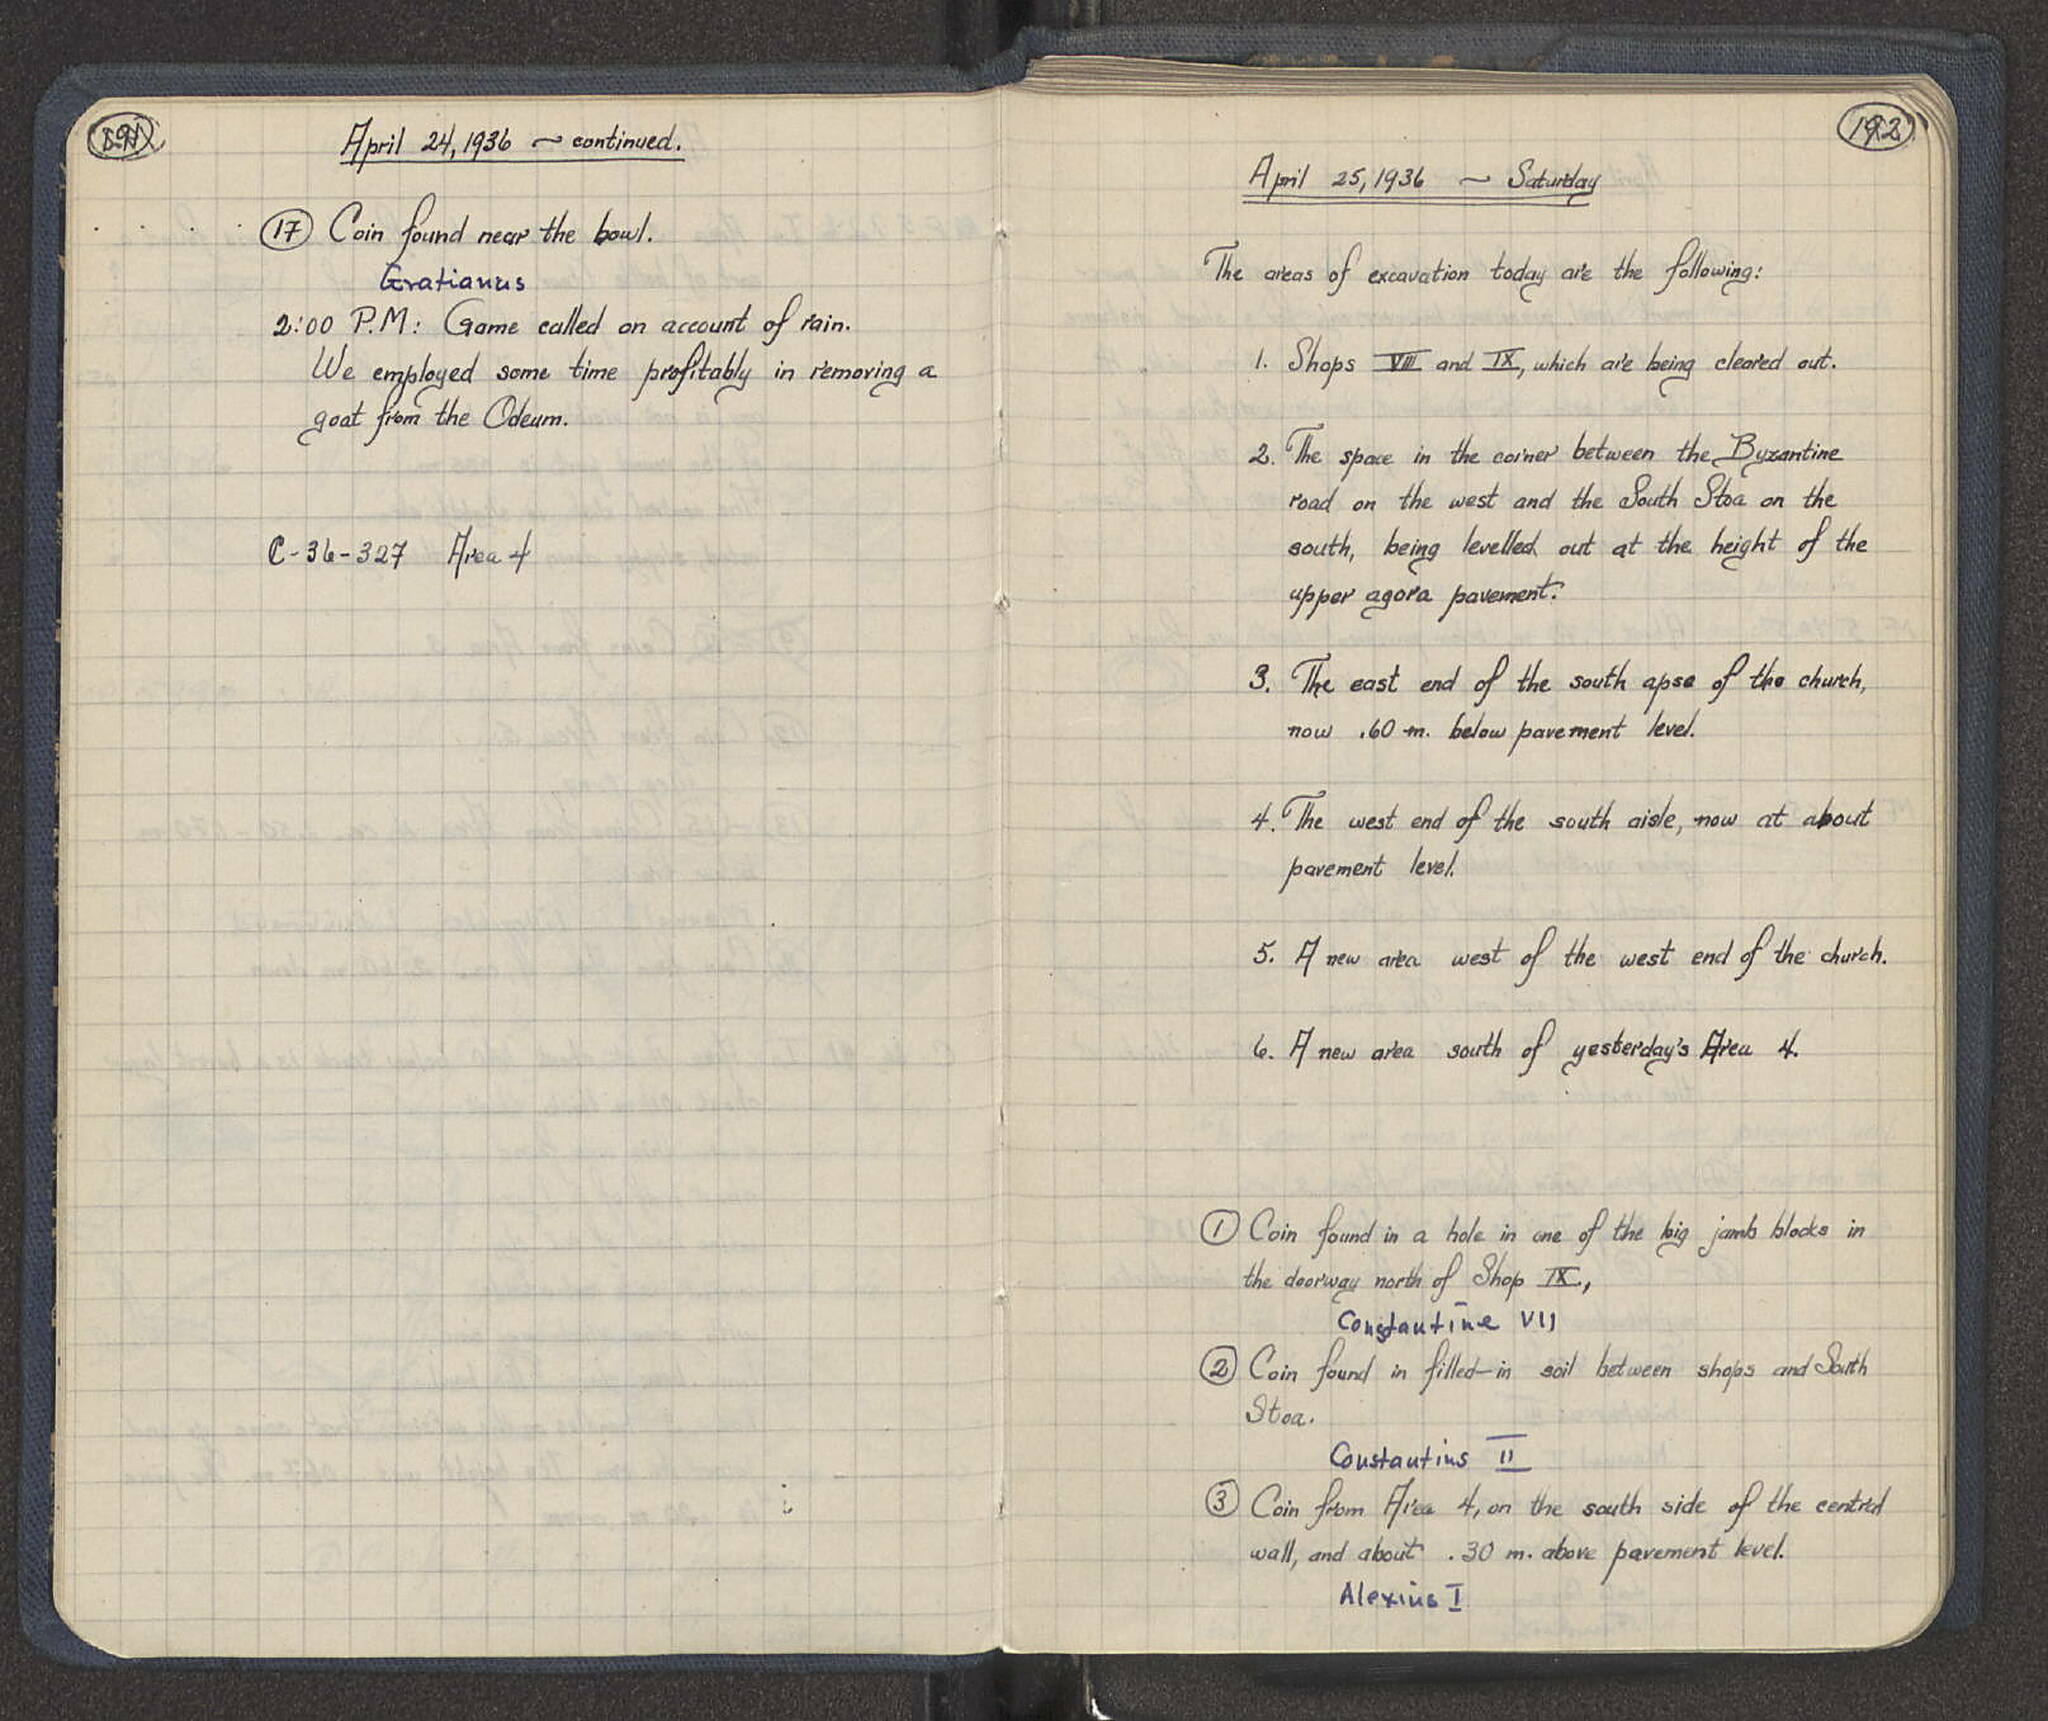 April 24, 1936 ~ continued.
17 Coin found near the bowl.
Gratianus
2:00 P.M: Game called on account of rain.
We employed some time profitably in removing a
goat from the Odeum.
C-36-327 Area 4
192
April 25, 1936 ~ Saturday
The areas of excavation today are the following:
1. Shops VIII and IX, which are being cleared out.
2. The space in the corner between the Byzantine
road on the west and the South Stoa on the
south, being levelled out at the height of the
upper agora pavement.
3. The east end of the south apse of the church,
now .60 m. below pavement level.
4. The west end of the south aisle, now at about
pavement level.
5. A new area west of the west end of the church.
6. A new area south of yesterday's Area 4.
1 Coin found in a hole in one of the big jamb blocks in
the doorway north of Shop IX,
Constantine VII
2 Coin found in filled-in soil between shops and South
Stoa.
Constantius II
3 Coin from Area 4, on the south side of the central
wall, and about .30 m. above pavement level.
Alexius I